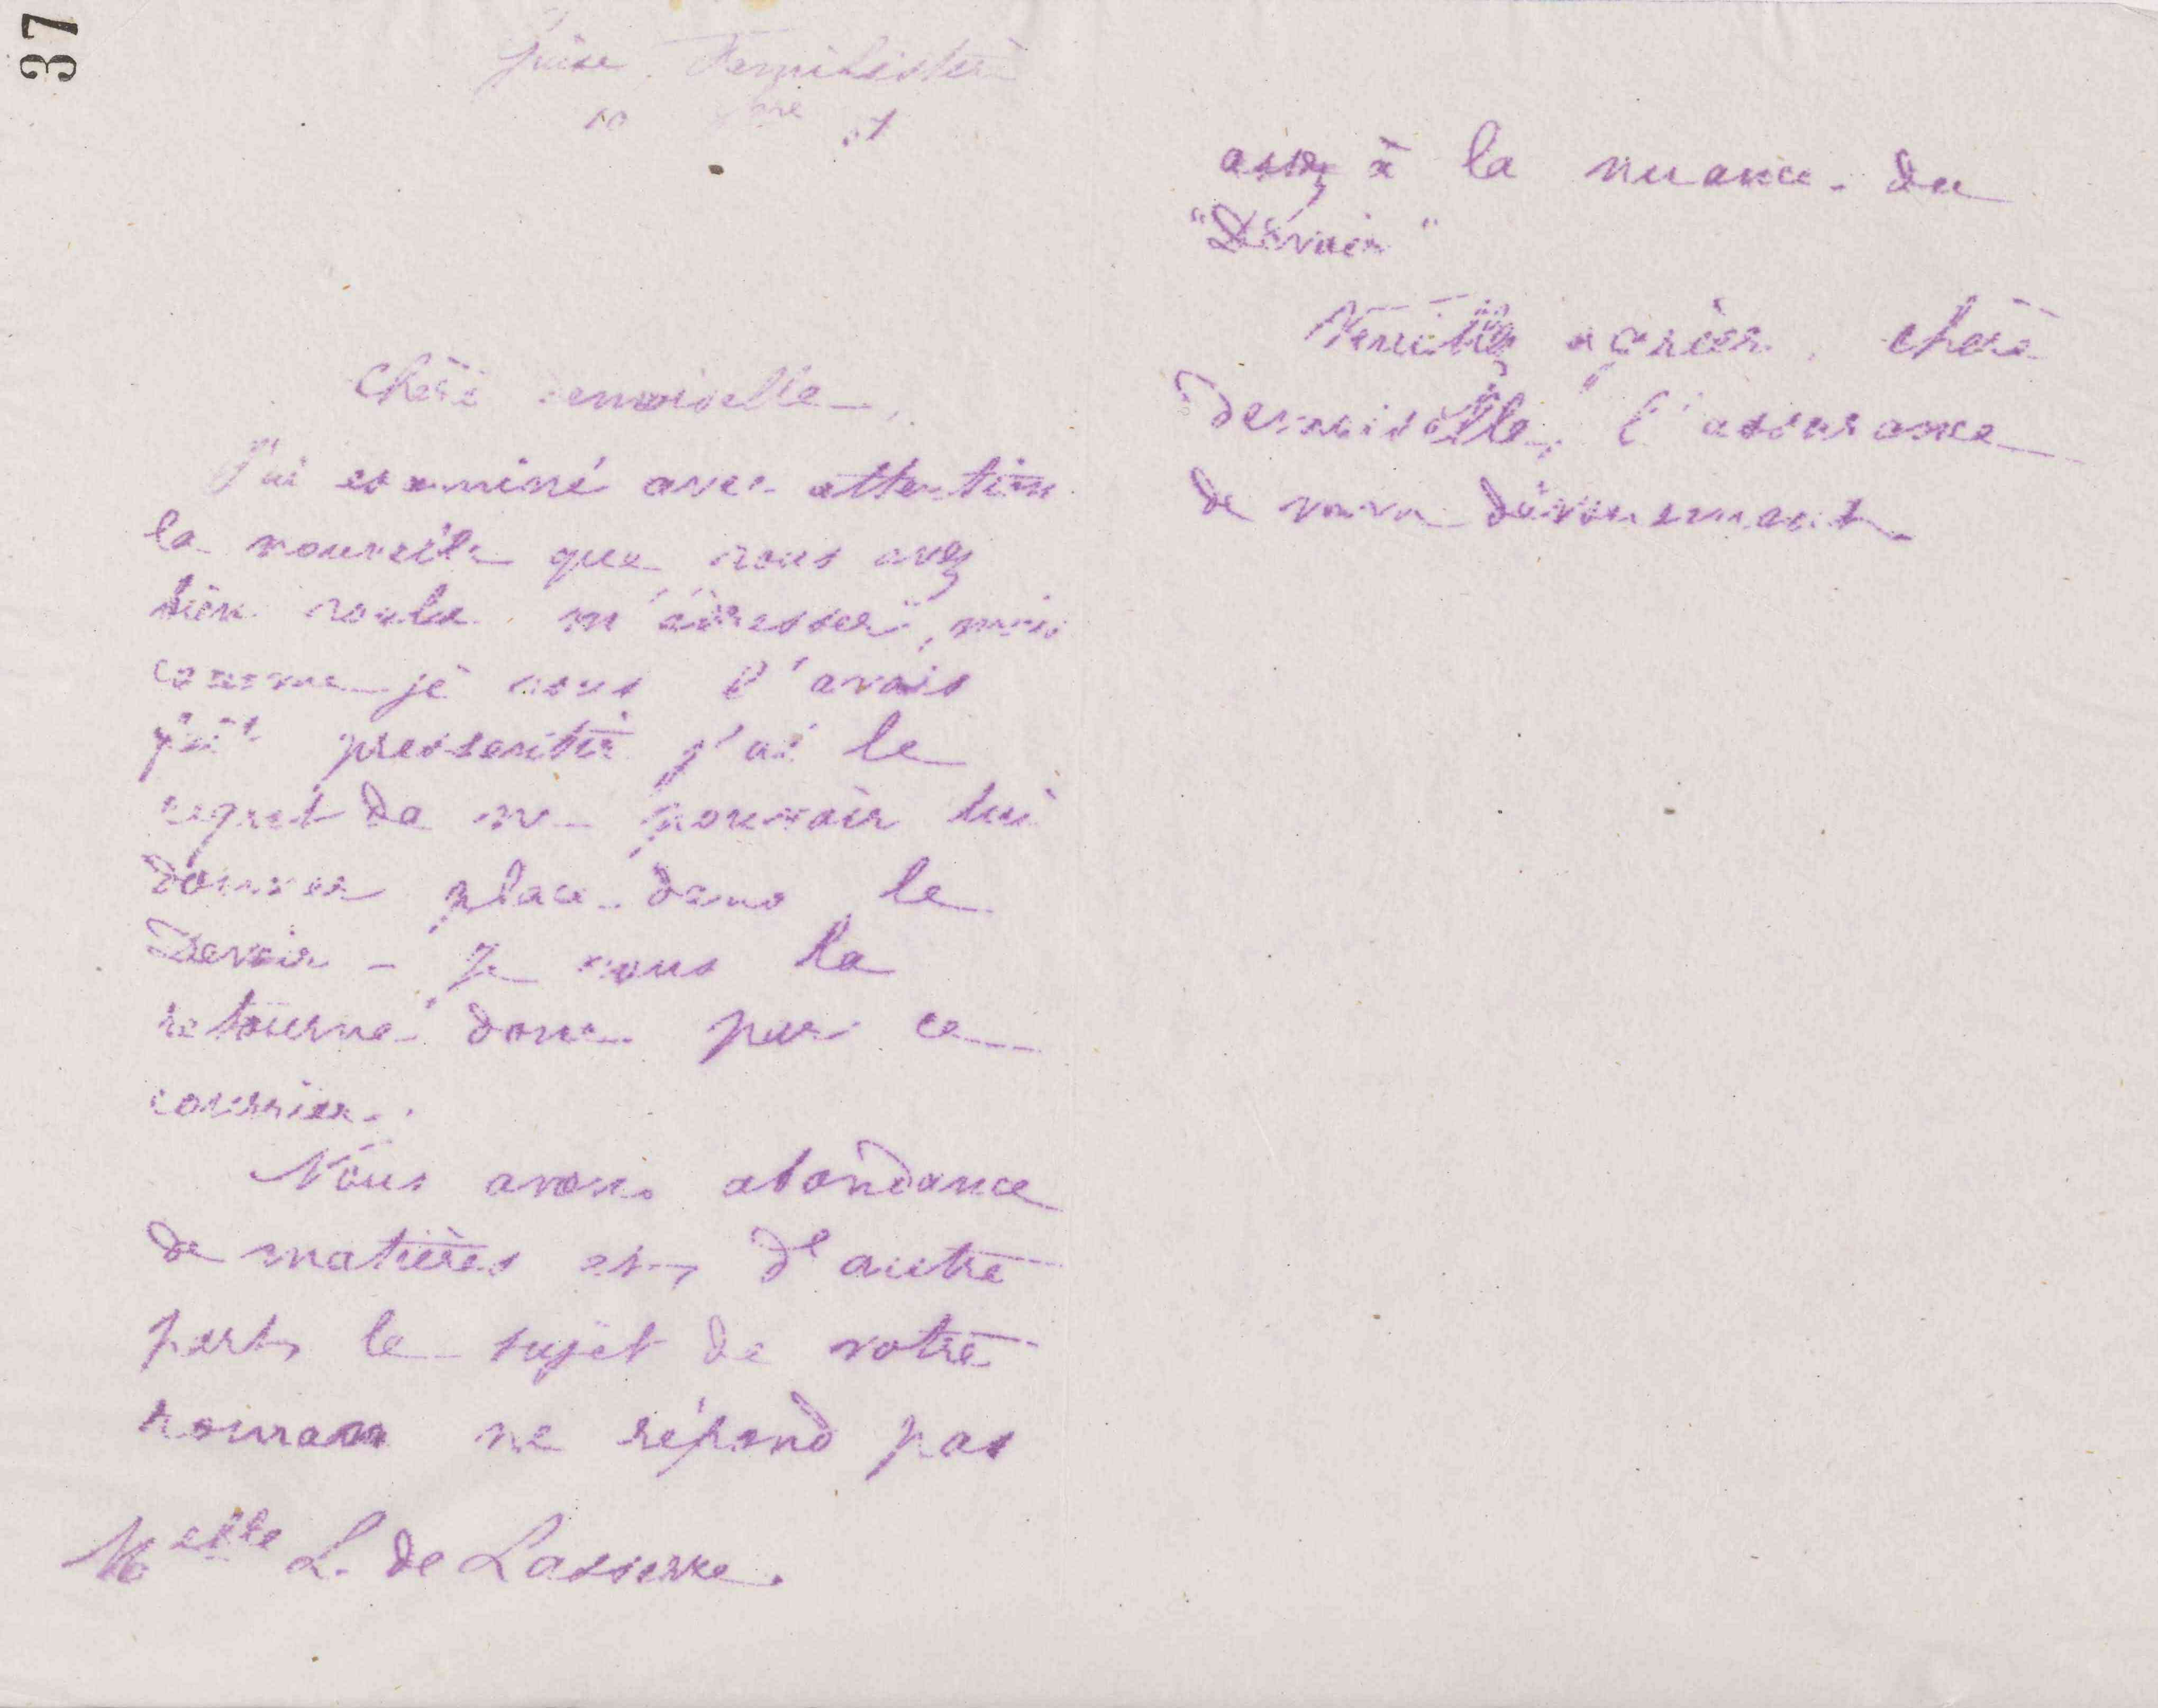 37
Guise Familistère
10 bre 91
Chère demoiselle,
J'ai examiné avec attention
la nouvelle que vous avez
bien voulu m'adresser, mais
comme je vous l'avais
fait pressentir j'ai le
regret de ne pouvoir lui
donner place dans le
Devoir – Je vous la
retourne donc par ce
courrier.
Nous avons abondance
de matières et, d'autre
part, le sujet de votre
roman ne répond pas
Melle L. de Lasserre.
assez à la nuance du
"Devoir"
Veuillez agréer, chère
demoiselle, l'assurance
de mon dévouement